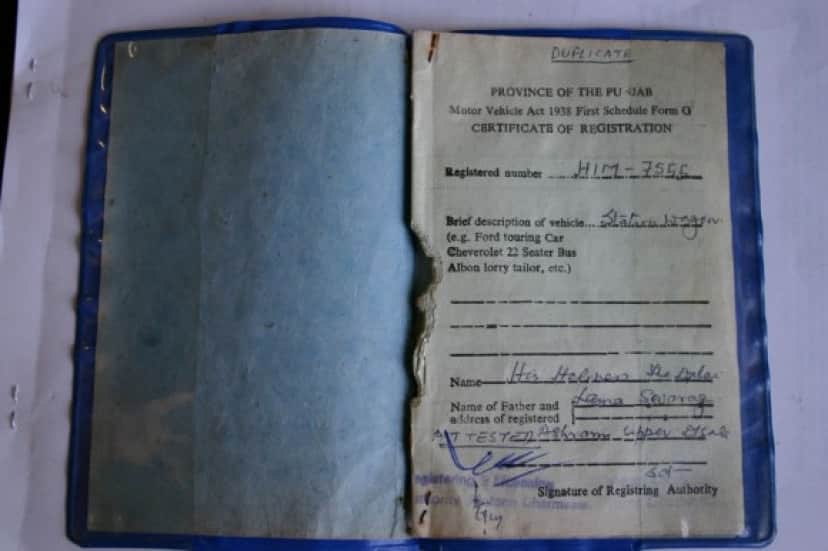 DUPLICATE
PROVINCE OF THE PU JAB
Motor Vehicle Act 1938 First Schedule Form G
CERTIFICATE OF REGISTRATION
Registered number HIM-7556
Brief description of vehicle Station Wagon
(e.g. Ford touring Car
Cheverolet 22 Seater Bus
Albon lorry tailor, etc.)
Name His Holiness The Dalai
Name of Father and Lama
address of registered
ATTESTED Ashram Upper
Sd-
Signature of Registring Authority